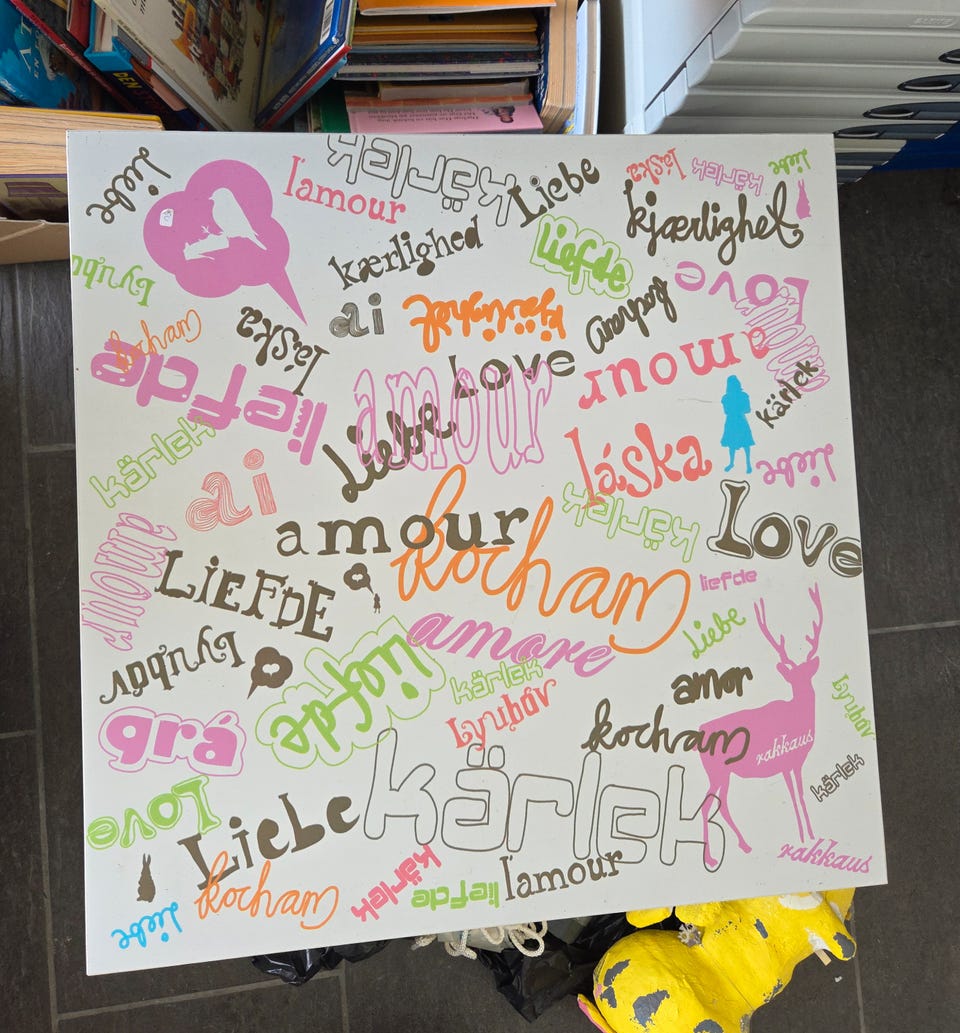 DEN
Liebe
l'amour
kärlek
Liebe
láska
kärlek
Liebe
kjærlighet
kærlighed
liefde
Lyubo
ai
kjärlighet
kocham
Love
kocham
láska
liefde
Love
amour
amour
amour
kärlek
Liebe
kärlek
láska
Liebe
ai
kärlek
Love
amour
kocham
amour
LiEFDE
liefde
Liebe
amore
Lyubov
liefde
kärlek
amor
Lyubov
Lyubov
grá
kocham
rakkaus
kärlek
kärlek
Love
Liebe
l'amour
rakkaus
kocham
kärlek
liefde
Liebe